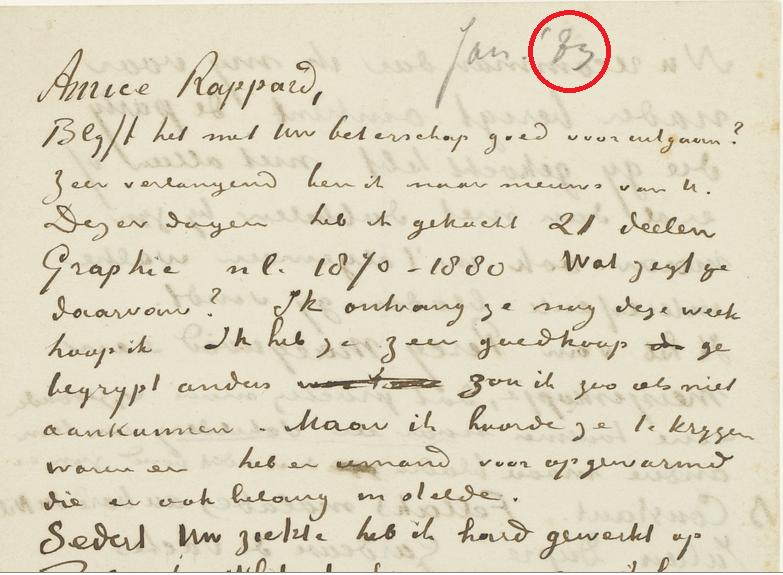 Jan. '83
Amice Rappard,
Blyft het met Uw beterschap goed vooruitgaan?
Zeer verlangend ben ik naar nieuws van U.
Dezer dagen heb ik gekocht 21 deelen
Graphic nl. 1870-1880 Wat zegt ge
daarvan? Ik ontvang ze nog deze week
hoop ik Ik heb ze zeer goedkoop ge
begrypt anders zou ik zoo iets niet
aankunnen. Maar ik hoorde ze te krygen
waren en heb er iemand voor opgewarmd
die er ook belang in stelde.
Sedert Uw ziekte heb ik hard gewerkt op